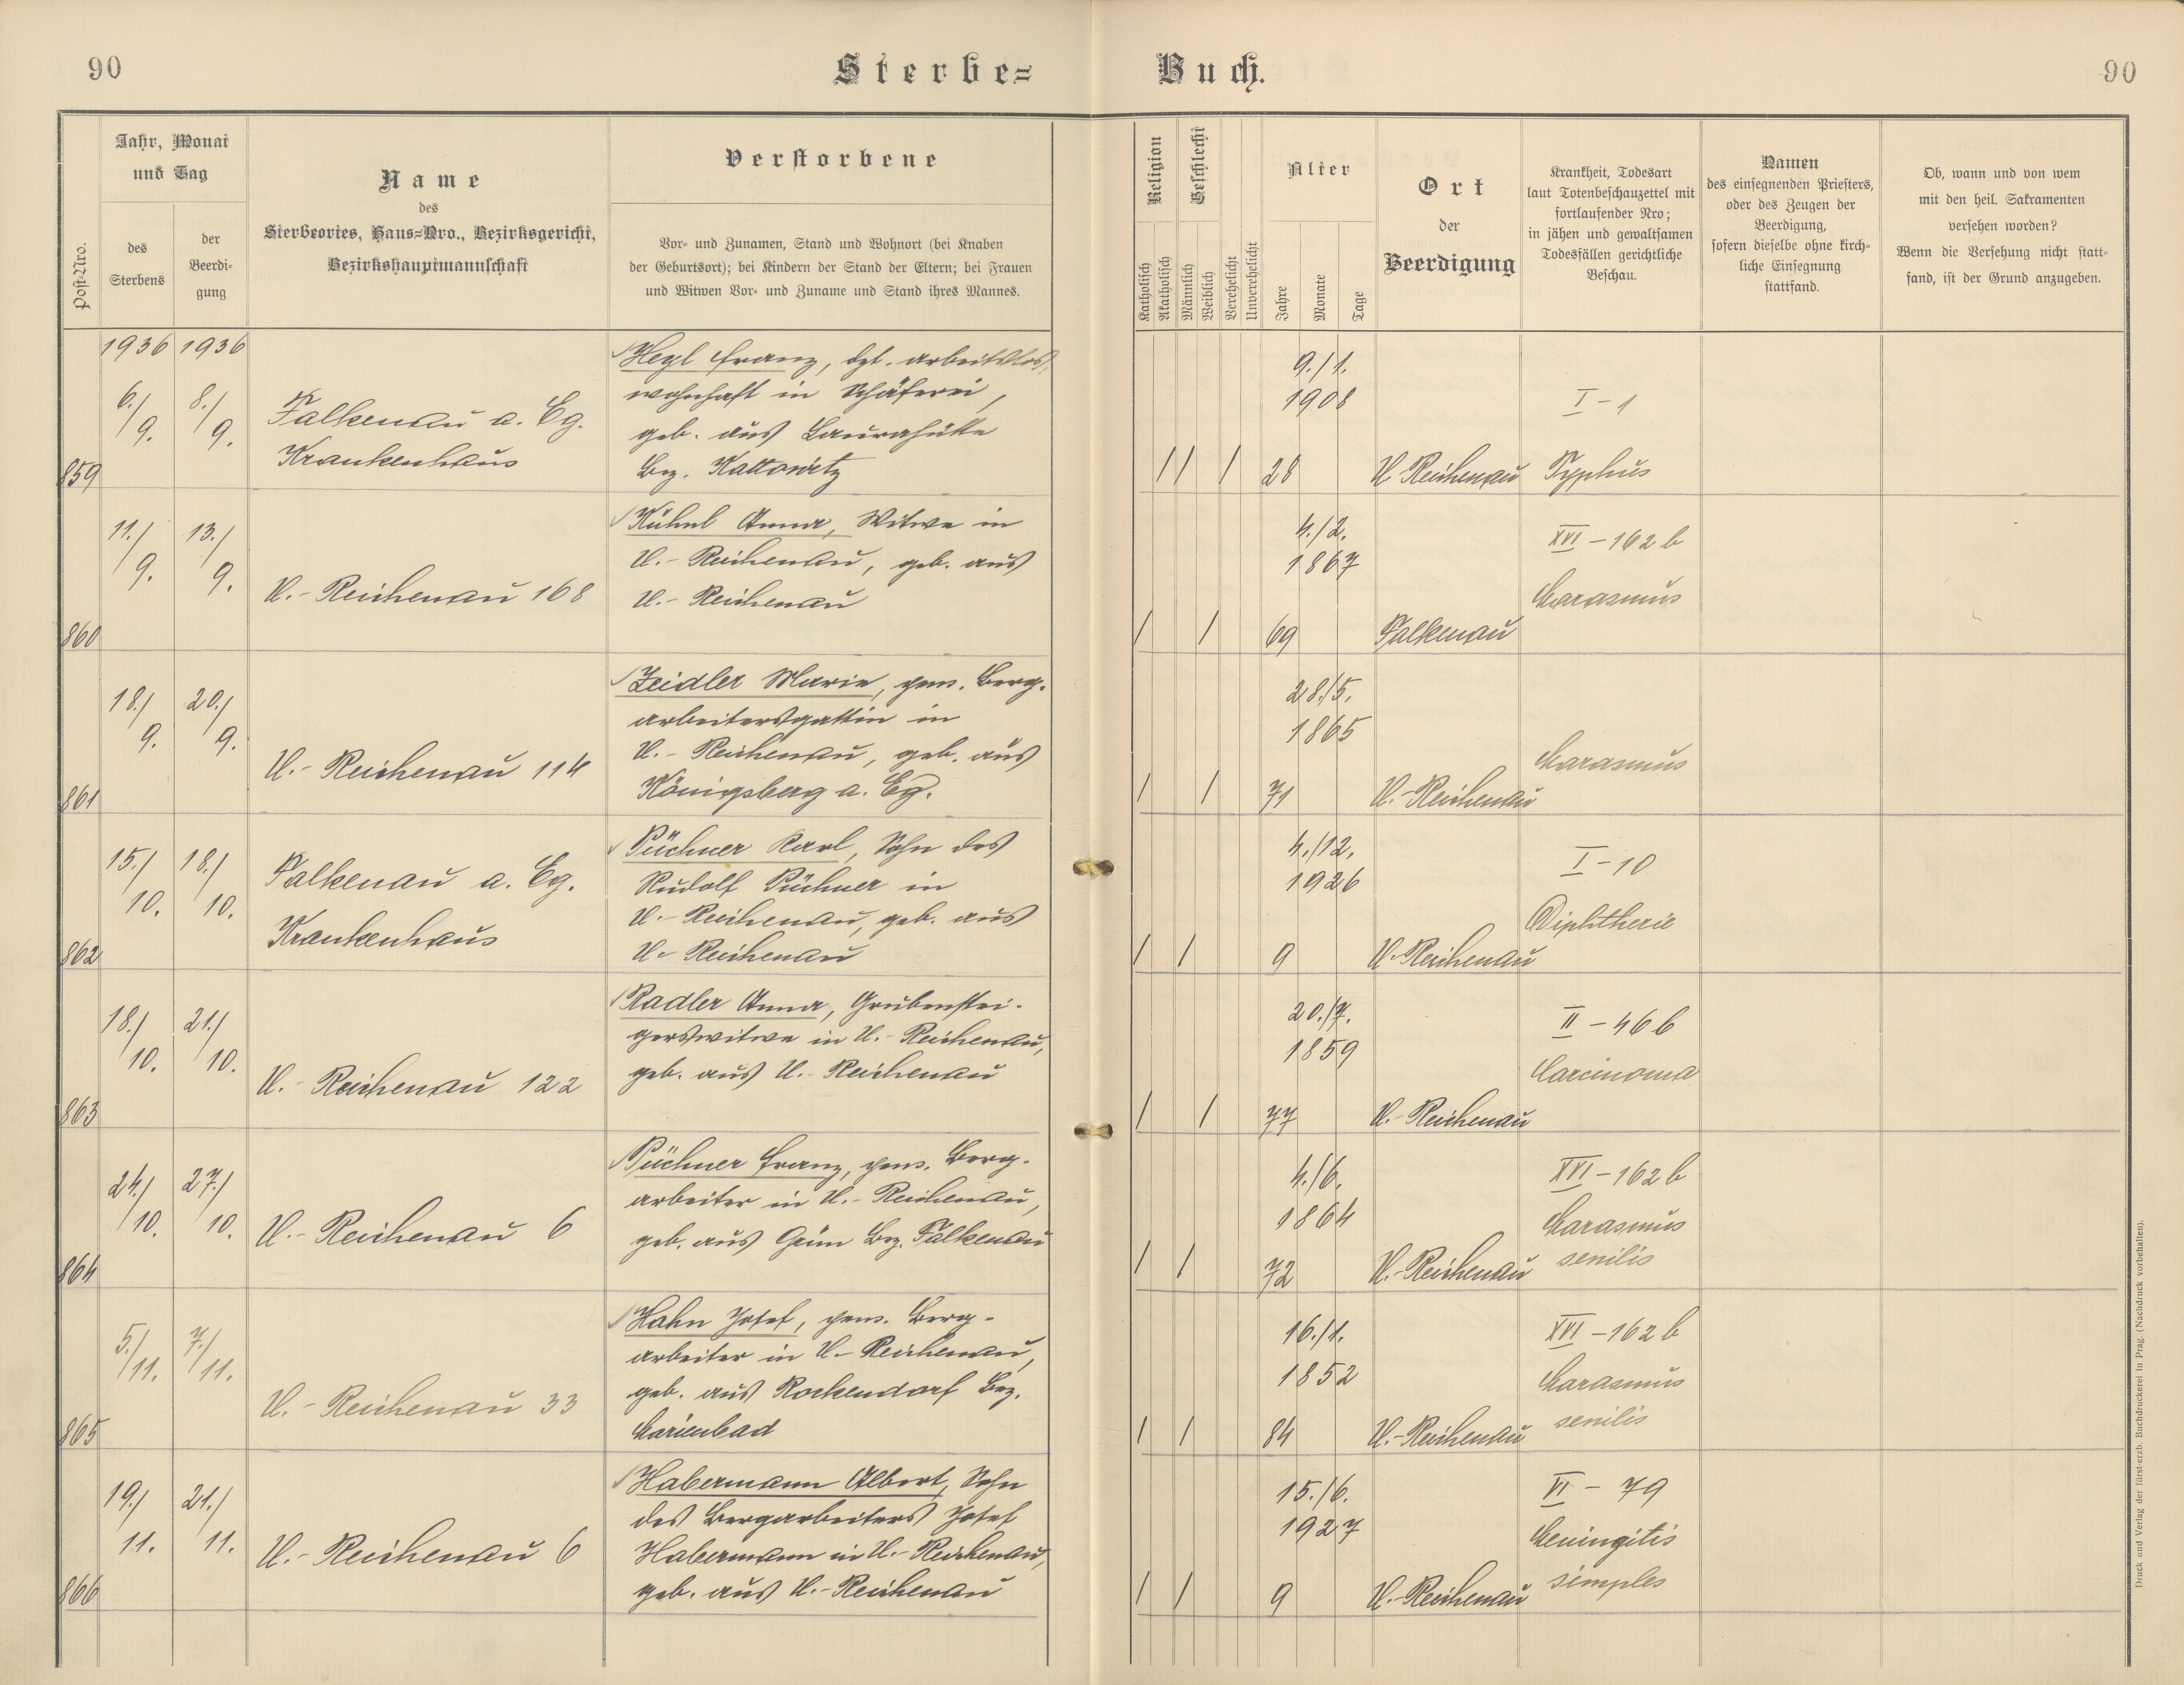 90
Sterbe=
Buch.
90
Post-Nro.
Jahr, Monat
und Tag
des
Sterbens
der
Beerdi-
gung
Name
des
Sterbeortes, Haus-Nro., Bezirksgericht,
Bezirkshauptmannschaft
Verstorbene
Vor- und Zunamen, Stand und Wohnort (bei Knaben
der Geburtsort); bei Kindern der Stand der Eltern; bei Frauen
und Witwen Vor- und Zuname und Stand ihres Mannes.
Religion
Katholisch
Akatholisch
Geschlecht
Männlich
Weiblich
Verehelicht
Unverehelicht
Alter
Jahre
Monate
Tage
Ort
der
Beerdigung
Krankheit, Todesart
laut Totenbeschauzettel mit
fortlaufender Nro;
in jähen und gewaltsamen
Todesfällen gerichtliche
Beschau.
Namen
des einsegnenden Priesters,
oder des Zeugen der
Beerdigung,
sofern dieselbe ohne kirch-
liche Einsegnung
stattfand.
Ob, wann und von wem
mit den heil. Sakramenten
versehen worden?
Wenn die Versehung nicht statt-
fand, ist der Grund anzugeben.
859
1936 1936
6./9. 8./9.
Falkenau a. Eg.
Krankenhaus
Hegl Franz, dzt. arbeitslos,
wohnhaft in Schäferei,
geb. aus Laurahütte
Bez. Kattowitz
/ / /
9./1.
1908
28
U. Reichenau
I - 1
Typhus
860
11./9. 13./9.
U.- Reichenau 168
Kühnl Anna, Witwe in
U.- Reichenau, geb. aus
U.- Reichenau
/ /
4./2.
1867
69
Falkenau
XVI - 162 b
Marasmus
861
18./9. 20./9.
U.- Reichenau 114
Zeidler Marie, pens. Berg-
arbeitersgattin in
U.- Reichenau, geb. aus
Königsberg a. Eg.
/ /
28./5.
1865
71
U.- Reichenau
Marasmus
862
15./10. 18./10.
Falkenau a. Eg.
Krankenhaus
Püchner Karl, Sohn des
Rudolf Püchner in
U.- Reichenau, geb. aus
U.- Reichenau
/ /
4./12.
1926
9
U.- Reichenau
I - 10
Diphtherie
863
18./10. 21./10.
U.- Reichenau 122
Radler Anna, Grubenstei-
gerswitwe in U.- Reichenau,
geb. aus U.- Reichenau
/ /
20./7.
1859
77
U.- Reichenau
II - 46 b
Carcinoma
864
24./10. 27./10.
U.- Reichenau 6
Püchner Franz, pens. Berg-
arbeiter in U.- Reichenau,
geb. aus Grün Bez. Falkenau
/ /
4./6.
1864
72
U.- Reichenau
XVI - 162 b
Marasmus
senilis
865
5./11. 7./11.
U.- Reichenau 33
Hahn Josef, pens. Berg-
arbeiter in U.- Reichenau,
geb. aus Rockendorf Bez.
Marienbad
/ /
16./1.
1852
84
U.- Reichenau
XVI - 162 b
Marasmus
senilis
866
19./11. 21./11.
U.- Reichenau 6
Habermann Albert, Sohn
des Bergarbeiters Josef
Habermann in U.- Reichenau,
geb. aus U.- Reichenau
/ /
15./6.
1927
9
U.- Reichenau
VI - 79
Meningitis
simples
Druck und Verlag der fürst-erzb. Buchdruckerei in Prag. (Nachdruck vorbehalten).